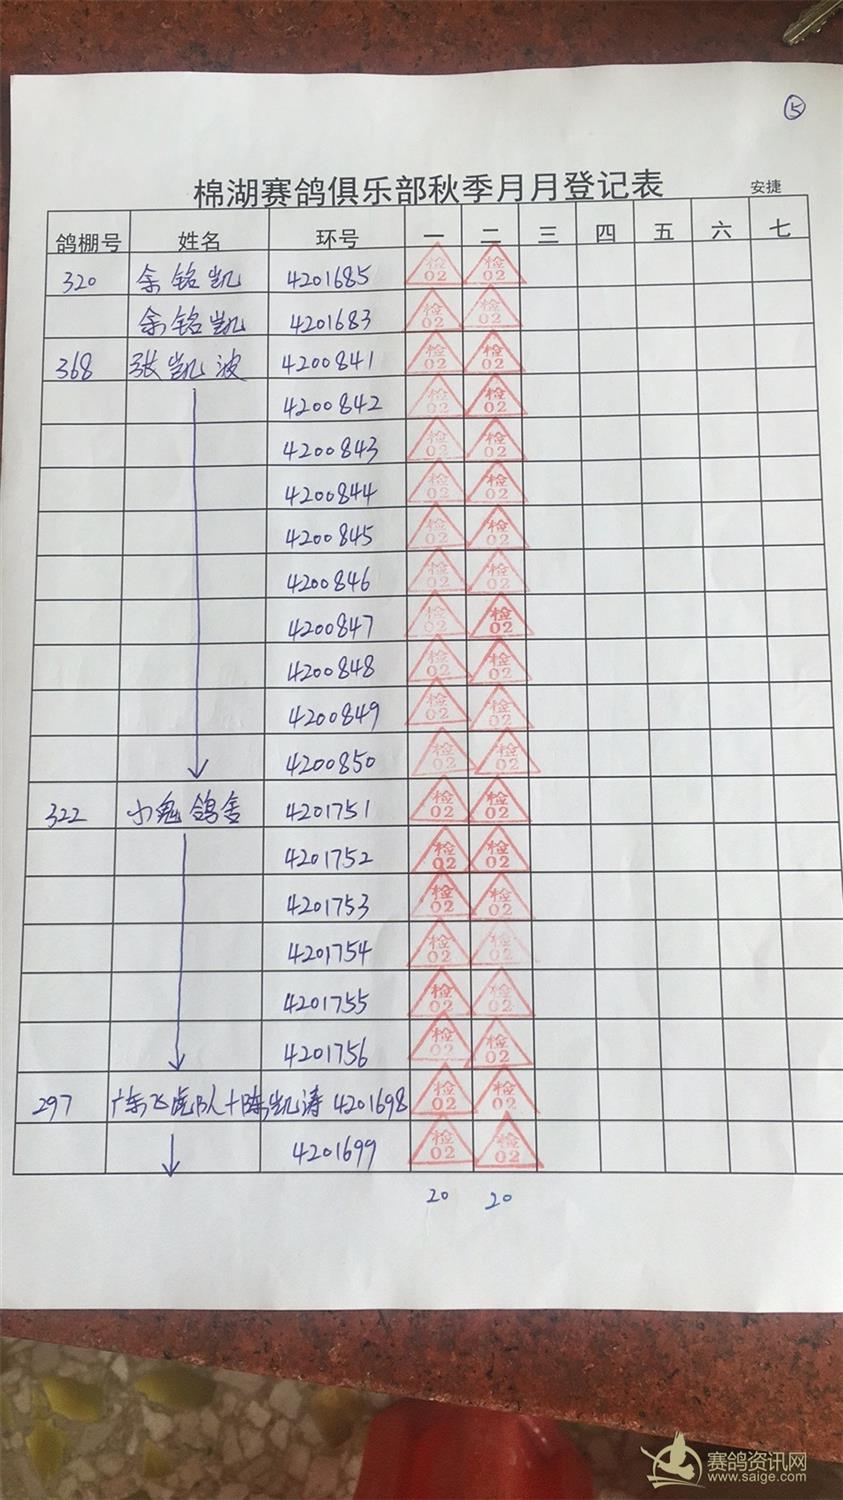 ⑤
棉湖赛鸽俱乐部秋季月月登记表 安捷
鸽棚号 姓名 环号 一 二 三 四 五 六 七
320 余铭凯 4201685 检02 检02
余铭凯 4201683 检02 检02
368 张凯波 4200841 检02 检02
4200842 检02 检02
4200843 检02 检02
4200844 检02 检02
4200845 检02 检02
4200846 检02 检02
4200847 检02 检02
4200848 检02 检02
4200849 检02 检02
4200850 检02 检02
322 小鬼鸽舍 4201751 检02 检02
4201752 检02 检02
4201753 检02 检02
4201754 检02 检02
4201755 检02 检02
4201756 检02 检02
297 广东飞虎队+陈凯涛 4201698 检02 检02
4201699 检02 检02
20 20
赛鸽资讯网
www.saige.com